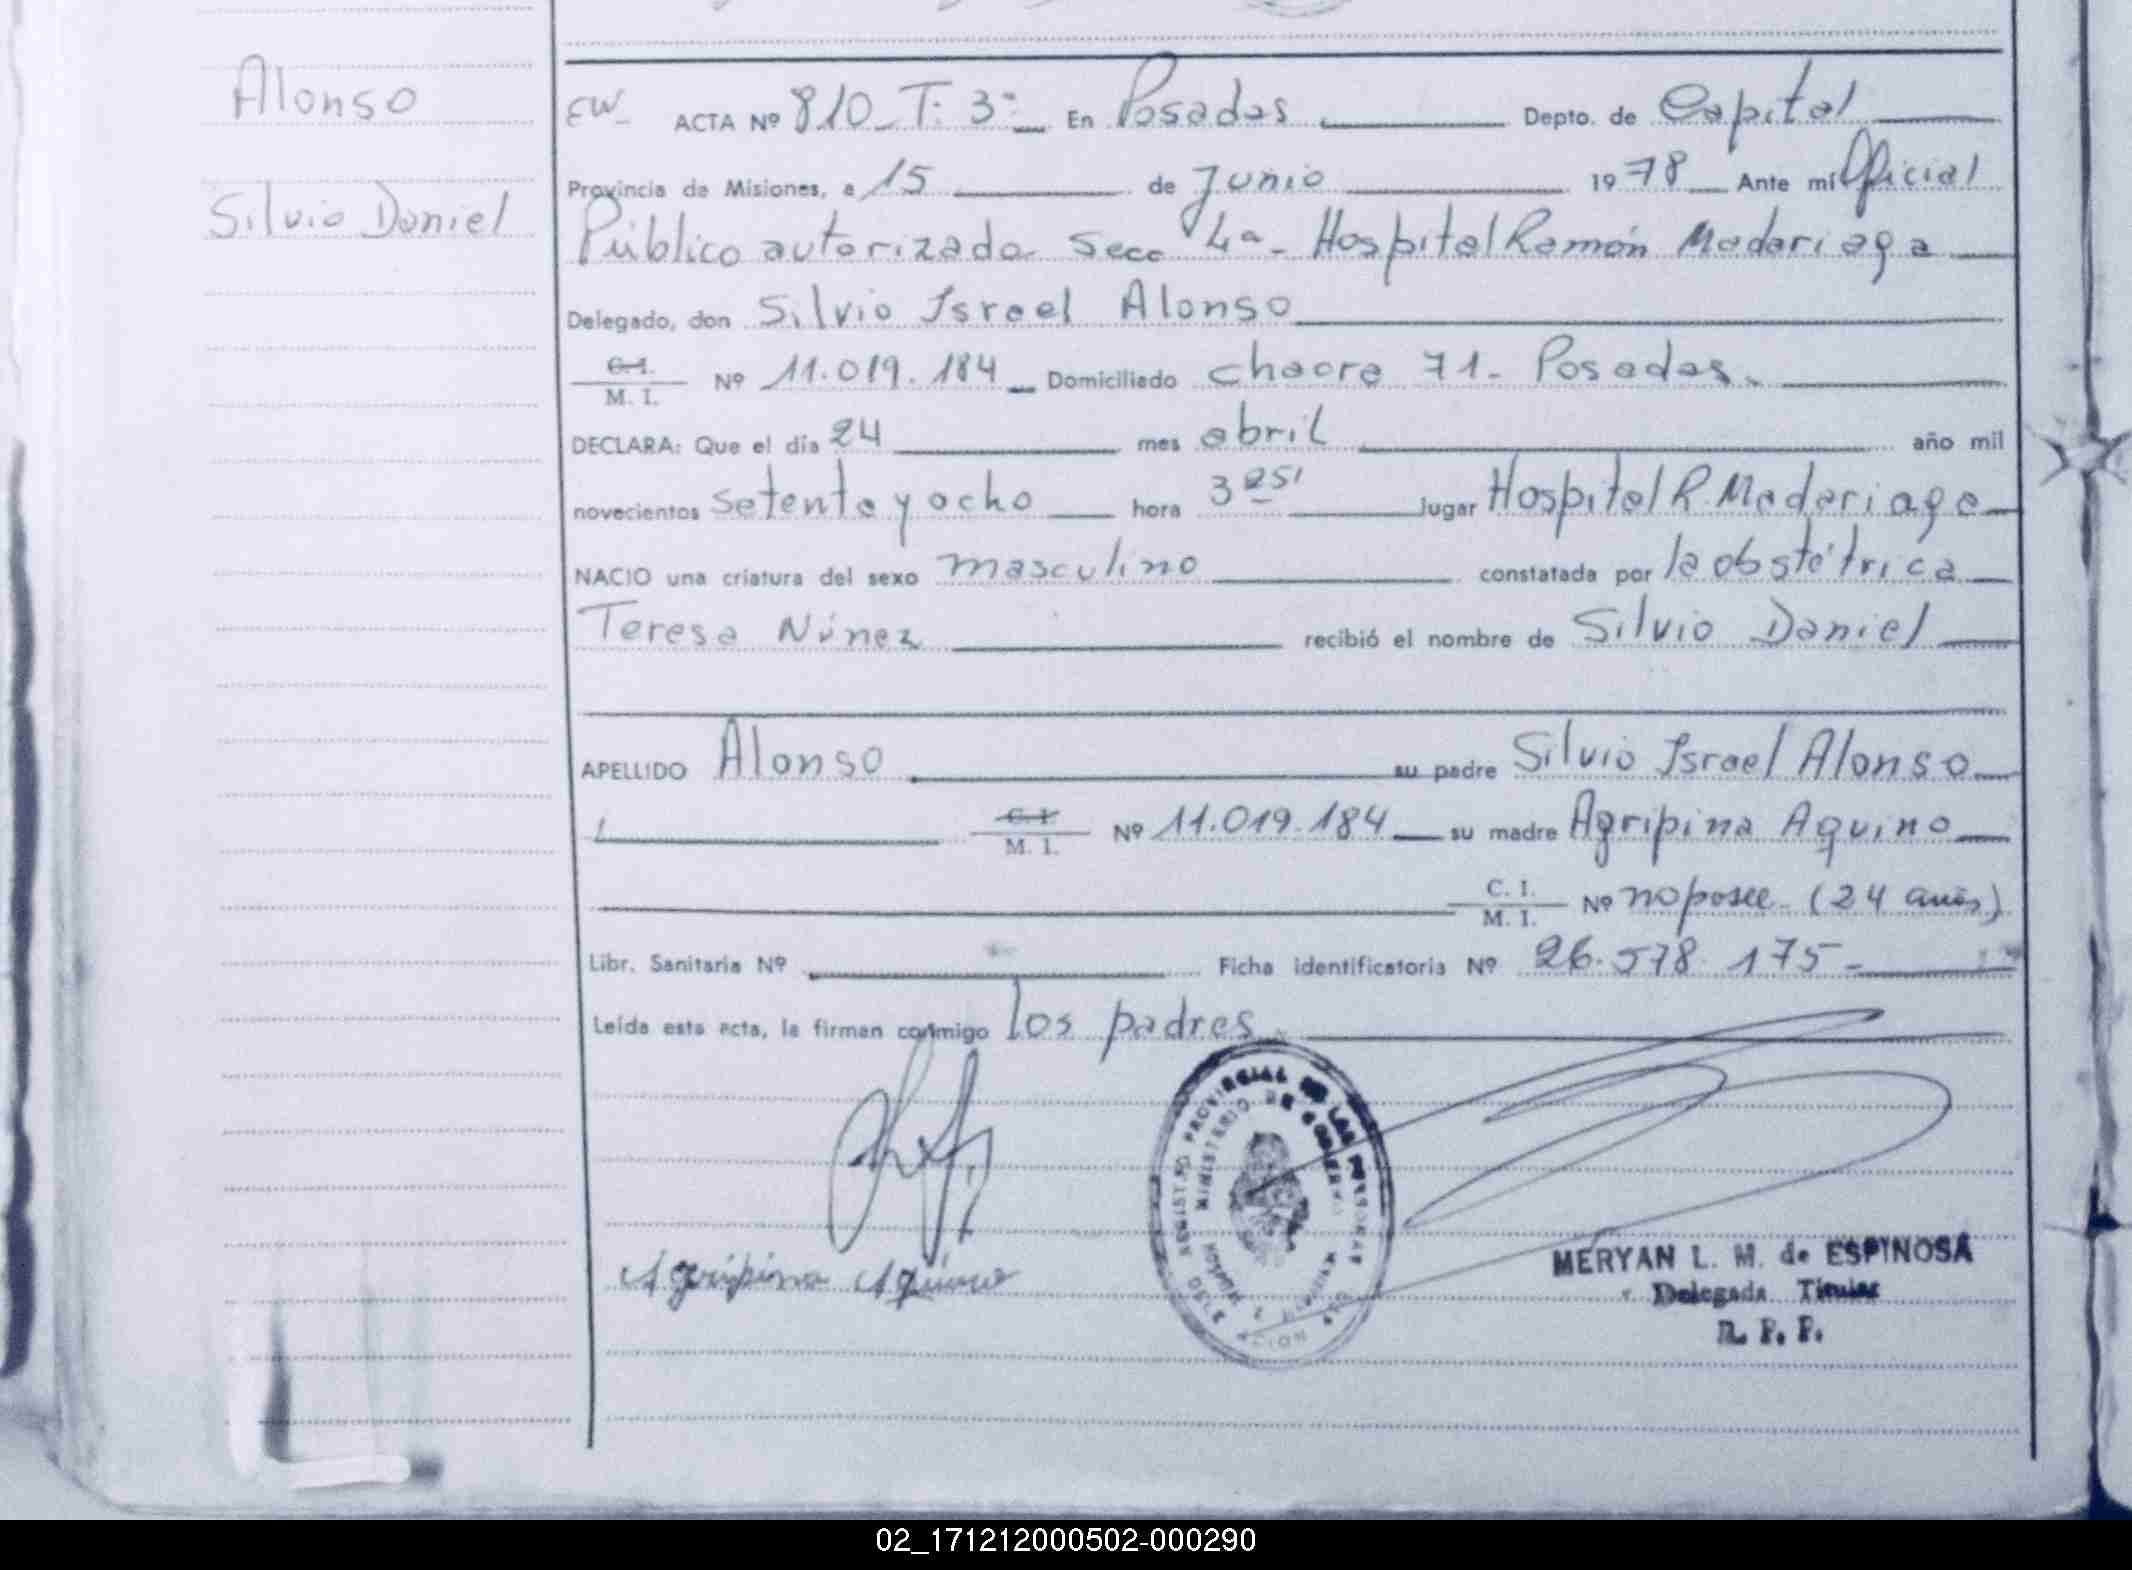 Alonso
Silvio Daniel
ACTA Nº 810_T: 3º_ En Posadas Depto. de Capital
Provincia de Misiones, a 15 de Junio 1978 Ante mí Oficial
Público autorizada Secc 4ª- Hospital Ramón Madariaga
Delegado, don Silvio Israel Alonso
C.I.
M. I. Nº 11.019.184 Domiciliado chacra 71- Posadas.
DECLARA: Que el día 24 mes abril año mil
novecientos setenta y ocho hora 3 25' lugar Hospital R. Madariaga
NACIO una criatura del sexo masculino constatada por la obstétrica
Teresa Núnez recibió el nombre de Silvio Daniel
APELLIDO Alonso su padre Silvio Israel Alonso
C. I.
M. I. Nº 11.019.184 su madre Agripina Aquino
C. I.
M. I. Nº no posee (24 años)
Libr. Sanitaria Nº Ficha identificatoria Nº 26.578.175-
Leída esta acta, la firman conmigo los padres
Agripina Aquino
MERYAN L. M. de ESPINOSA
Delegada Titular
R. P. P.
02_171212000502-000290